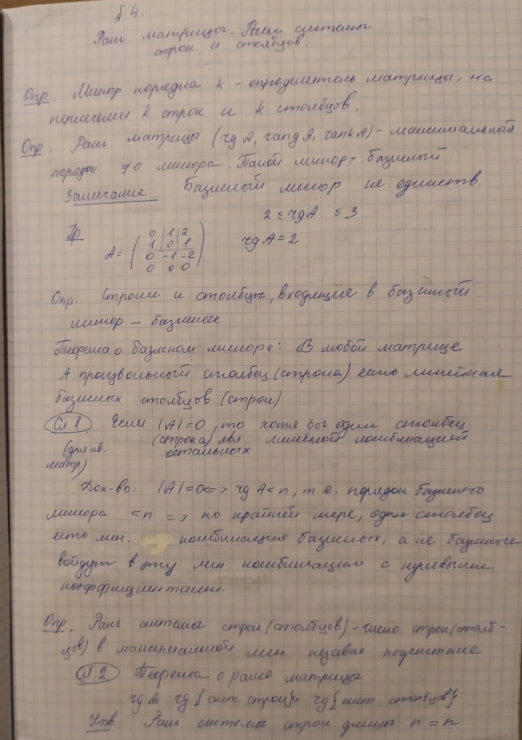 § 4.
Ранг матрицы. Ранг системы
строк и столбцов.
Опр. Минор порядка k - определитель матрицы, на
пересечении k строк и k столбцов.
Опр. Ранг матрицы (rg A, rang A, rank A) - максимальный
порядок ≠0 минора. Такой минор - базисный.
Замечание Базисный минор не единств.
2 ≤ rg A ≤ 3
Пр
A = ( 0 1 2
1 0 1
0 -1 -2
0 0 0 )
rg A = 2
Опр. Строки и столбцы, входящие в базисный
минор - базисные
Теорема о базисном миноре: В любой матрице
A произвольный столбец (строка) есть линейная
базисных столбцов (строк)
Сл.1 Если |A|=0, то хотя бы один столбец
(для кв. матр) (строка) явл. линейной комбинацией
остальных
Док-во: |A|=0 <=> rg A < n, т.е. порядок базисного
минора < n =, по крайней мере, один столбец
есть лин. комбинация базисных, а не базисные
войдут в эту лин. комбинацию с нулевыми
коэффициентами.
Опр. Ранг системы строк (столбцов) - число строк (столб-
цов) в максимальной лин. незав подсистеме
Сл.2 Теорема о ранге матрицы
rg A = rg {сист. строк} = rg {сист. столбцов}
Утв. Ранг системы строк длины n = n